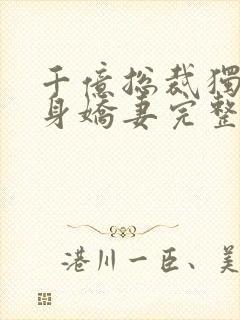 千億総裁獨
身嬌妻完整
港川一臣、美